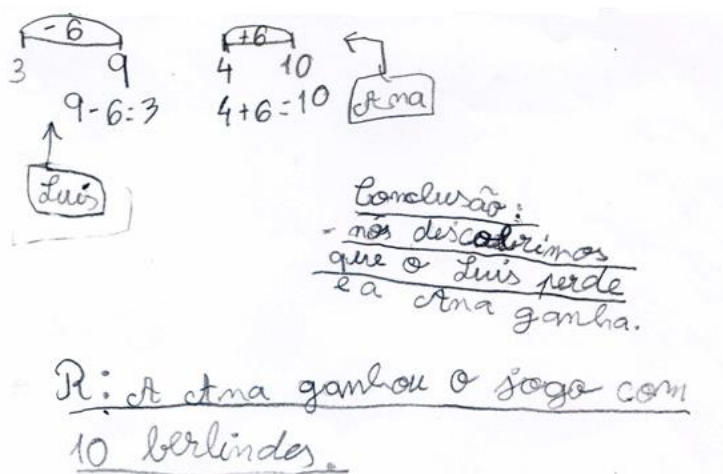 -6 +6
3 9 4 10
9-6=3 4+6=10 Ana
Luis
Conclusão:
- nós descobrimos
que o Luis perde
e a Ana ganha.
R: A Ana ganhou o jogo com
10 berlindes.